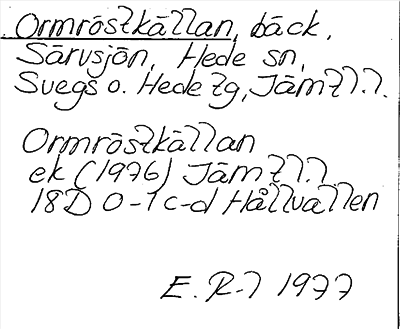 Ormröstkällan, bäck,
Särvsjön, Hede sn,
Svegs o. Hede tg, Jämtl.
Ormröstkällan
ek (1976) Jämtl.
18D 0-1 c-d Hållvallen
E. R-l 1977